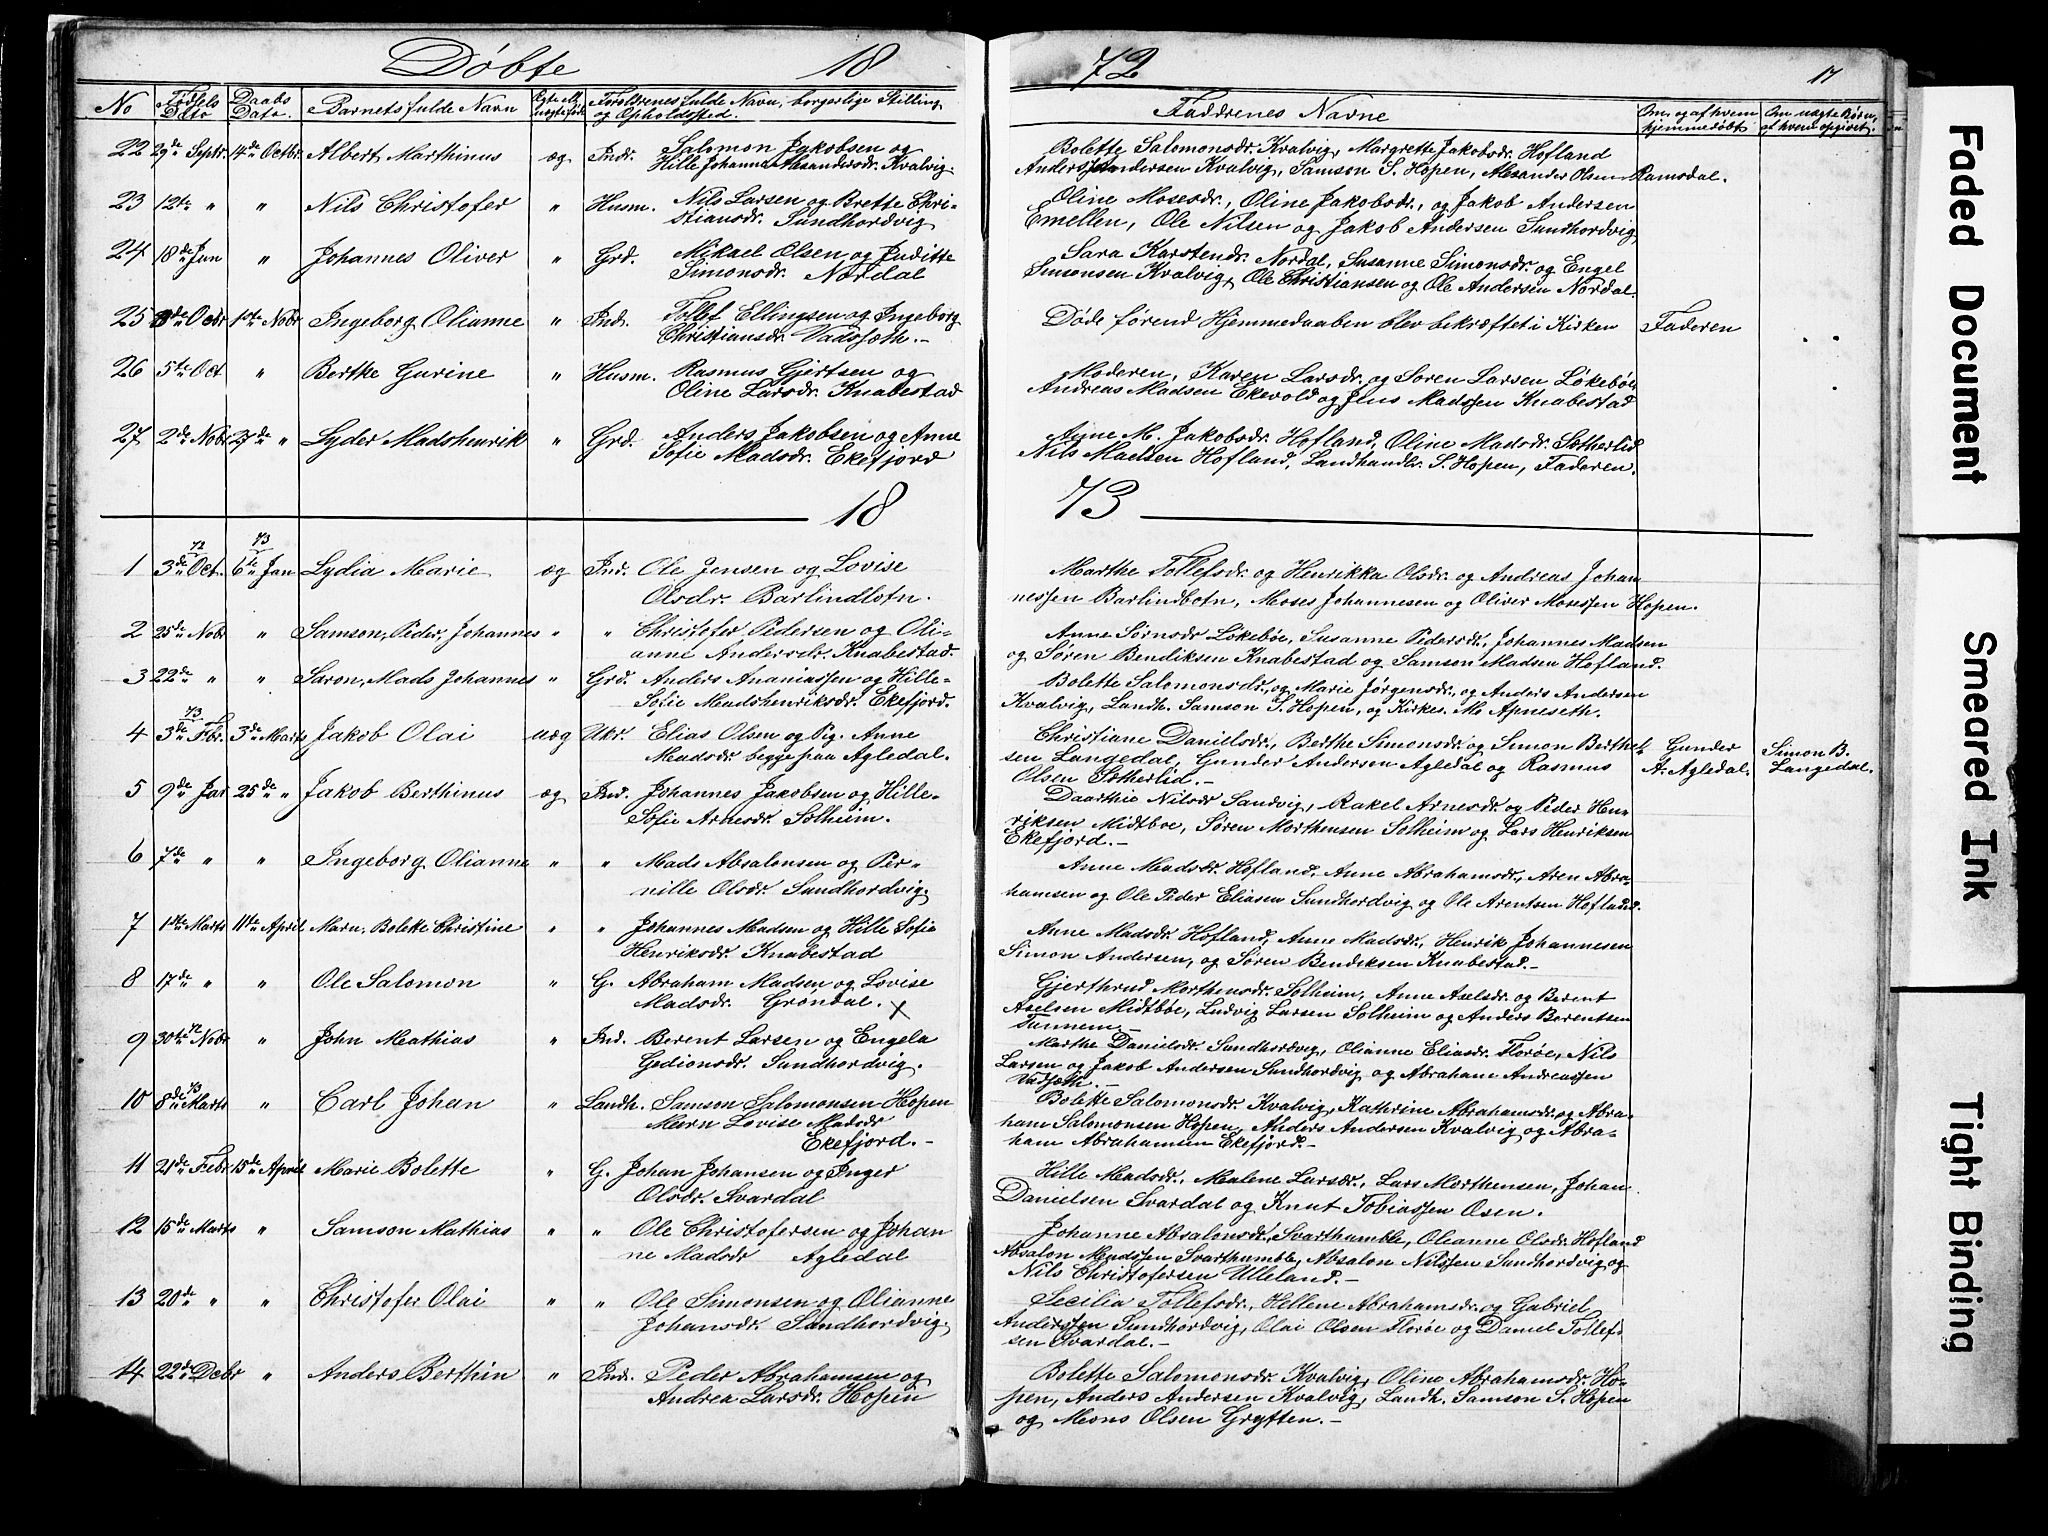 Døbte 18
72
17
No
Fødsels Dato
Daabs Dato.
Barnets fulde Navn
Egte ell. uegte født
Forældrenes fulde Navn, borgerlige Stilling og Opholdssted.
Faddrenes Navne
Om og af hvem hjemmedøbt
Om uægte Børn, af hvem opgivet.
22 29de Septr. 14de Octbr. Albert Marthinus æg Indr. Salomon Jakobsen og
Hille Johanna Alexandersdr. Kvalvig.
Bolette Salomonsdr. Kvalvig, Margrette Jakobsdr. Hofland
Anders Andersen Kvalvig, Samson S. Hopen, Alexander Olsen Ramsdal.
23 12te " " Nils Christofer " Husm. Nils Larsen og Brette Chri-
stiansdr. Sundhordvig
Oline Mosesdr., Oline Jakobsdr., og Jakob Andersen
Emellen, Ole Nilsen og Jakob Andersen Sundhordvig
24 18de Jun " Johannes Oliver " Grd. Mikael Olsen og Juditte
Simonsdr. Nordal
Sara Karstendr. Nordal, Susanne Simonsdr. og Engel
Simonsen Kvalvig, Ole Christiansen og Ole Andersen Nordal.
25 Octr 1ste Nobr Ingeborg Olianne " Indr. Tollef Ellingsen og Ingeborg
Christiansdr. Vadsjøth.-
Døde førend Hjemmedaaben blev bekræftet i Kirken Faderen
26 5te Oct " Berthe Gurine " Husm. Rasmus Gjertsen og
Oline Larsdr. Knabestad
Moderen, Karen Larsdr. og Søren Larsen Løkebøe
Andreas Madsen Ekevold og Jens Madssen Knabestad
27 2de Nobr 27de " Lyder Madshenrik " Grd. Anders Jakobsen og Anne
Sofie Madsdr. Ekefjord
Anne M. Jakobsdr. Hofland, Oline Madsdr. Sætherlid
Nils Madsen Hofland, Landhandlr. S. Hopen, Faderen.
18 73
72 73
1 3de Oct. 6de Jan Lydia Marie æg Ind. Ole Jensen og Lovise
Olsdr. Barlindbotn.
Marthe Tollefsdr. og Henrikka Olsdr. og Andreas Johan
nessen Barlindbotn, Moses Johannesen og Oliver Mosessen Hopen.
2 25de Nobr " Samson, Peder, Johannes " " Christofer Pedersen og Oli-
anne Andersdr. Knabestad.
Anne Sørnsdr Løkebøe, Susanne Pedersdr., Johannes Madsen
og Søren Bendiksen Knabestad og Samson Madsen Hofland.
3 22de " " Saron, Mads Johannes " Grd. Anders Ananiassen og Hille-
Sofie Madshenriksdr. Ekefjord.
Bolette Salomonsdr., og Marie Jørgensdr., og Anders Andersen
Kvalvig, Landh. Samson S. Hopen, og Kirkes. M. Apneseth.
73
4 3de Fbr. 3de Marts Jakob Olai uæg Ukr. Elias Olsen og Pig. Anne
Madsdr. begge paa Agledal.
Christiane Danielsdr., Berthe Simonsdr. og Simon Berthel-
sen Langedal, Gunder Andersen Agledal og Rasmus
Olsen Sætherlid.-
Gunder A. Agledal.
Simon B. Langedal.
5 9de Jar 25de " Jakob Berthinus æg Ind. Johannes Jakobsen og Hille-
Sofie Arnesdr. Solheim.
Daarthie Nilsdr Sandvig, Rakel Arnesdr. og Peder Hen-
riksen Midtbøe, Søren Morthensen Solheim og Lars Henriksen
Ekefjord.-
6 7de " " Ingeborg Olianne " " Mads Absalonsen og Per-
nille Olsdr. Sundhordvig.
Anne Madsdr. Hofland, Anne Abrahamsdr., Aren Abra-
hamsen og Ole Peder Eliasen Sundhordvig og Ole Arentsen Hofland.
7 1ste Marts 11te April Marn, Bolette Christine " " Johannes Madsen og Hille Sofie
Henriksdr. Knabestad
Anne Madsdr. Hofland, Anne Madsdr., Henrik Johannesen
Simon Andersen, og Søren Bendiksen Knabestad.-
8 17de " " Ole Salomon " G. Abraham Madsen og Lovise
Madsdr. Grøndal. X
Gjerthrud Morthensdr. Solheim, Anne Axelsdr. og Berent
Axelsen Midtbøe, Ludvig Larsen Solheim og Anders Berentsen
Tunnem.-
72
9 30te Nobr " John Mathias " Ind. Berent Larsen og Engela
Gedionsdr. Sundhordvig.
Marthe Danielsdr. Sundhordvig, Olianne Eliasdr. Florøe, Nils
Larsen og Jakob Andersen Sundhordvig og Abraham Andreassen
Vadsjøth.-
73
10 8de Marts " Carl Johan " Landh. Samson Salomonsen Hopen
Marn Lovise Madsdr
Ekefjord.-
Bolette Salomonsdr. Kvalvig, Kathrine Abrahamsdr. og Abra-
ham Salomonsen Hopen, Anders Andersen Kvalvig og Abra-
ham Abrahamsen Ekefjord.-
11 21de Febr 15de April Marie Bolette " G. Johan Johansen og Inger
Olsdr. Svardal
Hille Madsdr., Malene Larsdr., Lars Morthensen, Johan
Danielsen Svardal og Knut Tobiassen Osen.
12 15de Marts " Samson Mathias " " Ole Christofersen og Johan
ne Madsdr Agledal
Johanne Absalonsdr., Svarthumble, Olianne Olsdr. Hofland
Absalon Madssen Svarthumble, Absalon Nilssen Sundhordvig og
Nils Christofersen Ulleland.-
13 20de " " Christofer Olai " " Ole Simonsen og Olianne
Johansdr. Sandhordvig.
Secilia Tollefsdr., Hellene Abrahamsdr. og Gabriel
Anderssen Sundhordvig, Olai Olsen Florøe og Daniel Tollef-
sen Svardal.-
14 22de Debr " Anders Berthin " Ind. Peder Abrahamsen og
Andrea Larsdr. Hopen
Bolette Salomonsdr. Kvalvig, Oline Abrahamsdr. Ho-
pen, Anders Andersen Kvalvig, Landh. Samson S. Hopen
og Mons Olsen Grytten.-
Faded Document
Smeared Ink
Tight Binding